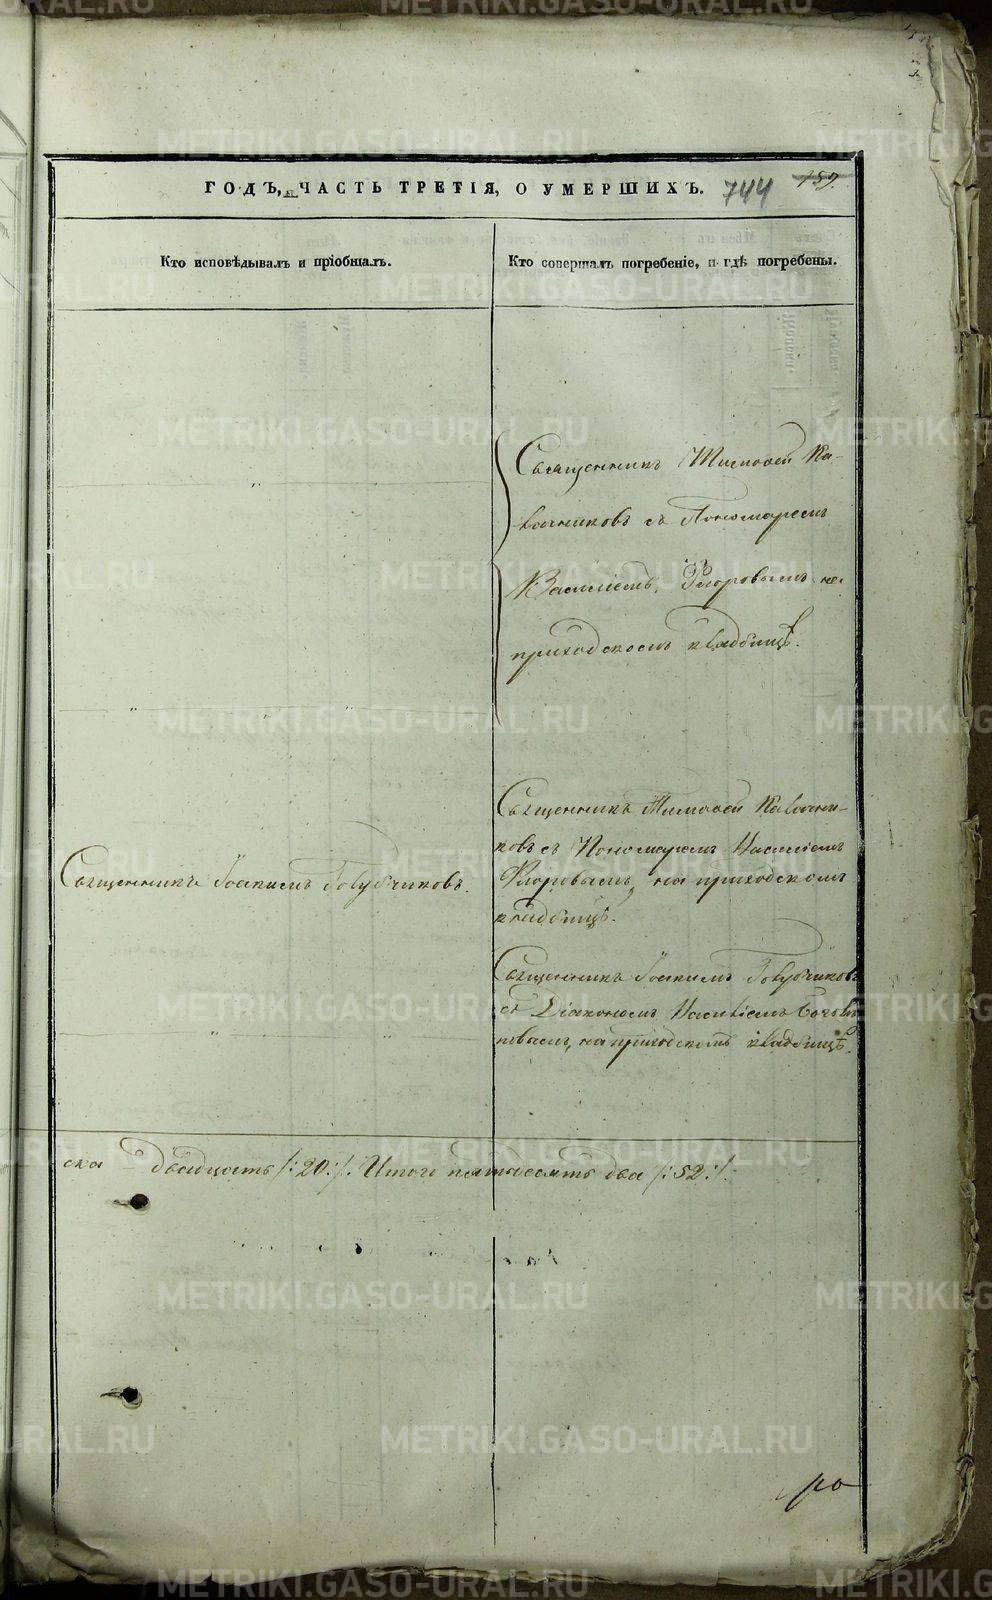 ГОДЪ, ЧАСТЬ ТРЕТІЯ, О УМЕРШИХЪ. 744 159.
Кто исповѣдывалъ и пріобщалъ.
Кто совершалъ погребеніе, и гдѣ погребены.
Священникъ Тимофей Ка-
лачниковъ съ Пономаремъ
Василіемъ Флоровымъ на
приходскомъ кладбищѣ.
Священникъ Іоакимъ Голубчиковъ.
Священникъ Тимофей Калачни-
ковъ съ Пономаремъ Василіемъ
Флоровымъ, на приходскомъ
кладбищѣ.
Священникъ Іоакимъ Голубчиковъ
съ Діакономъ Василіемъ
повымъ, на приходскомъ кладбищѣ.
ска двадцать /:20:/. Итого пятьдесятъ два /:52:/.
METRIKI.GASO-URAL.RU